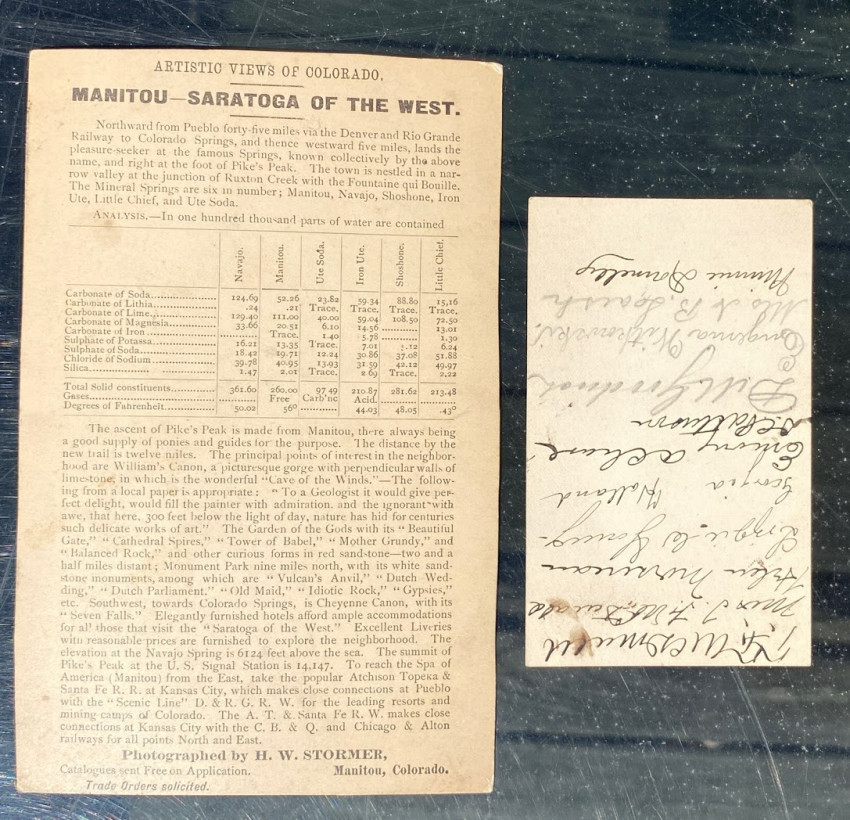 ARTISTIC VIEWS OF COLORADO.
MANITOU—SARATOGA OF THE WEST.
Northward from Pueblo forty-five miles via the Denver and Rio Grande
Railway to Colorado Springs, and thence westward five miles, lands the
pleasure-seeker at the famous Springs, known collectively by the above
name, and right at the foot of Pike's Peak. The town is nestled in a nar-
row valley at the junction of Ruxton Creek with the Fountaine qui Bouille.
The Mineral Springs are six in number; Manitou, Navajo, Shoshone, Iron
Ute, Little Chief, and Ute Soda.
ANALYSIS.—In one hundred thousand parts of water are contained
Navajo. Manitou. Ute Soda. Iron Ute. Shoshone. Little Chief.
Carbonate of Soda 124.69 52.26 23.82 59.34 88.80 15,16
Carbonate of Lithia .24 .21 Trace. Trace. Trace. Trace.
Carbonate of Lime 129.40 111.00 40.00 59.04 108.50 72.50
Carbonate of Magnesia 33.66 20.51 6.10 14.56 13.01
Carbonate of Iron Trace. 1.40 5.78 1.30
Sulphate of Potassa 16.21 13.35 Trace. 7.01 .12 6.24
Sulphate of Soda 18.42 19.71 12.24 30.86 37.08 51.88
Chloride of Sodium 39.78 40.95 13.93 31.59 42.12 49.97
Silica 1.47 2.01 Trace. 2.69 Trace. 2.22
Total Solid constituents 361.60 260.00 97 49 210.87 281.62 213.48
Gases Free Carb'nc Acid.
Degrees of Fahrenheit 50.02 56° 44.03 48.05 43°
The ascent of Pike's Peak is made from Manitou, there always being
a good supply of ponies and guides for the purpose. The distance by the
new trail is twelve miles. The principal points of interest in the neighbor-
hood are William's Canon, a picturesque gorge with perpendicular walls of
limestone, in which is the wonderful "Cave of the Winds."—The follow-
ing from a local paper is appropriate: "To a Geologist it would give per-
fect delight, would fill the painter with admiration. and the ignorant with
awe, that here, 300 feet below the light of day, nature has hid for centuries
such delicate works of art." The Garden of the Gods with its "Beautiful
Gate," "Cathedral Spires," "Tower of Babel," "Mother Grundy," and
"Balanced Rock," and other curious forms in red sandstone—two and a
half miles distant; Monument Park nine miles north, with its white sand-
stone monuments, among which are "Vulcan's Anvil," "Dutch Wed-
ding," "Dutch Parliament," "Old Maid," "Idiotic Rock," "Gypsies,"
etc. Southwest, towards Colorado Springs, is Cheyenne Canon, with its
"Seven Falls." Elegantly furnished hotels afford ample accommodations
for all those that visit the "Saratoga of the West." Excellent Liveries
with reasonable prices are furnished to explore the neighborhood. The
elevation at the Navajo Spring is 6124 feet above the sea. The summit of
Pike's Peak at the U. S. Signal Station is 14,147. To reach the Spa of
America (Manitou) from the East, take the popular Atchison Topeka &
Santa Fe R. R. at Kansas City, which makes close connections at Pueblo
with the "Scenic Line" D. & R. G. R. W. for the leading resorts and
mining camps of Colorado. The A. T. & Santa Fe R. W. makes close
connections at Kansas City with the C. B. & Q. and Chicago & Alton
railways for all points North and East.
Photographed by H. W. STORMER,
Catalogues sent Free on Application. Manitou, Colorado.
Trade Orders solicited.
Helen Morsman
Lizzie W Young
Georgia Holland
Emory
Goodrich
Eugenia
Minnie Donnelly